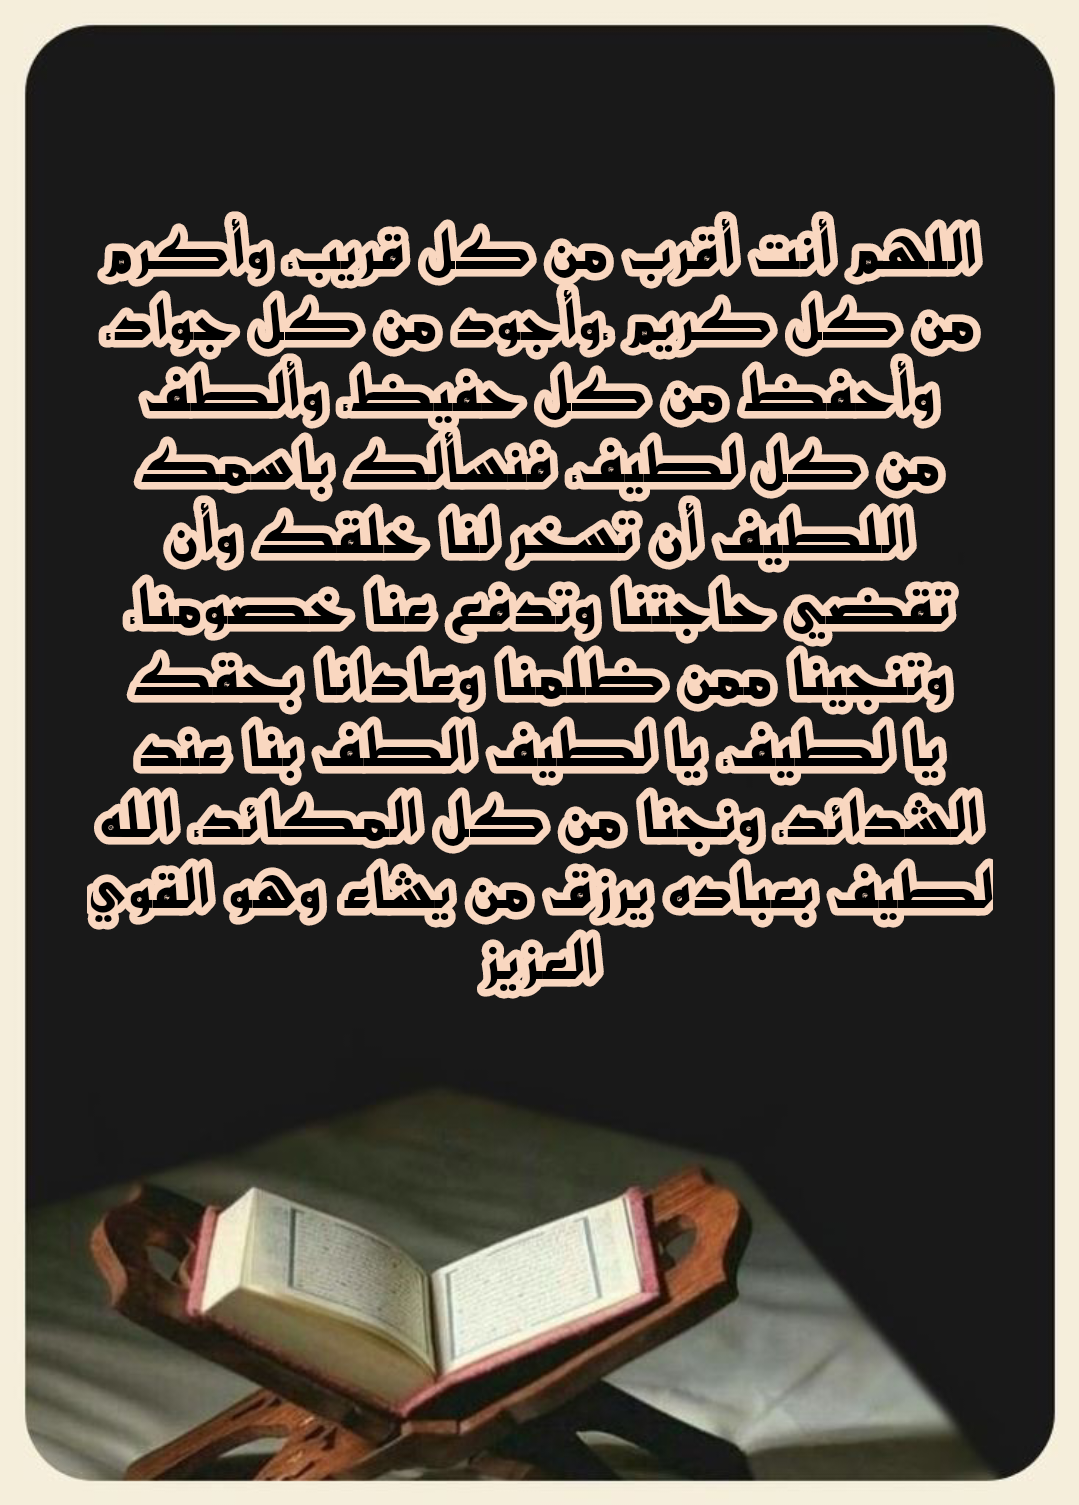 اللهم أنت أقرب من كل قريب، وأكرم
من كل كريم ،وأجود من كل جواد،
وأحفظ من كل حفيظ، وألطف
من كل لطيف، فنسألك باسمك
اللطيف أن تسخر لنا خلقك وأن
تقضي حاجتنا وتدفع عنا خصومنا،
وتنجينا ممن ظلمنا وعادانا بحقك
يا لطيف، يا لطيف الطف بنا عند
الشدائد، ونجنا من كل المكائد، الله
لطيف بعباده يرزق من يشاء وهو القوي
العزيز